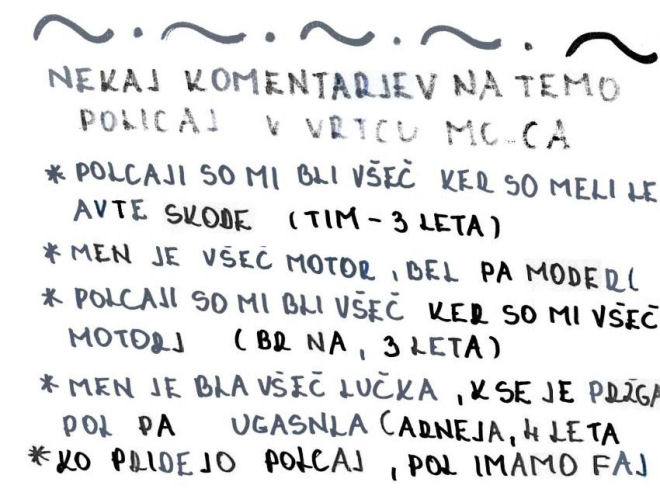 NEKAJ KOMENTARJEV NA TEMO
POLICAJ V VRTCU MC-CA
* POLCAJI SO MI BLI VŠEČ KER SO MELI LE
AVTE SKODE (TIM - 3 LETA)
* MEN JE VŠEČ MOTOR, BEL PA MODER(
* POLCAJI SO MI BLI VŠEČ KER SO MI VŠEČ
MOTORJ (BR NA, 3 LETA)
* MEN JE BLA VŠEČ LUČKA, K SE JE PRŽGA
POL PA UGASNLA (ARNEJA, 4 LETA
* KO PRIDEJO POLCAJ, POL IMAMO FAJ